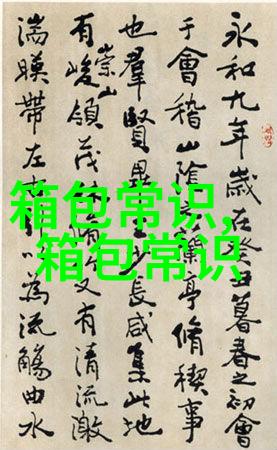 永和九年歲在癸丑暮春之初會
于會稽山陰蘭亭脩稧事
也羣賢畢少長咸集此地
有崇山峻領茂林又有清流激
湍暎帶左以為流觴曲水
箱包常识,
箱包常识